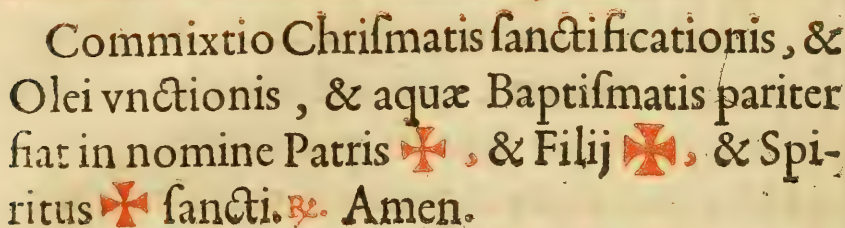 Commixtio Chriſmatis ſanctificationis, &
Olei vnctionis, & aquæ Baptiſmatis pariter
fiat in nomine Patris ✠, & Filij ✠, & Spi-
ritus ✠ ſancti. ℟. Amen.